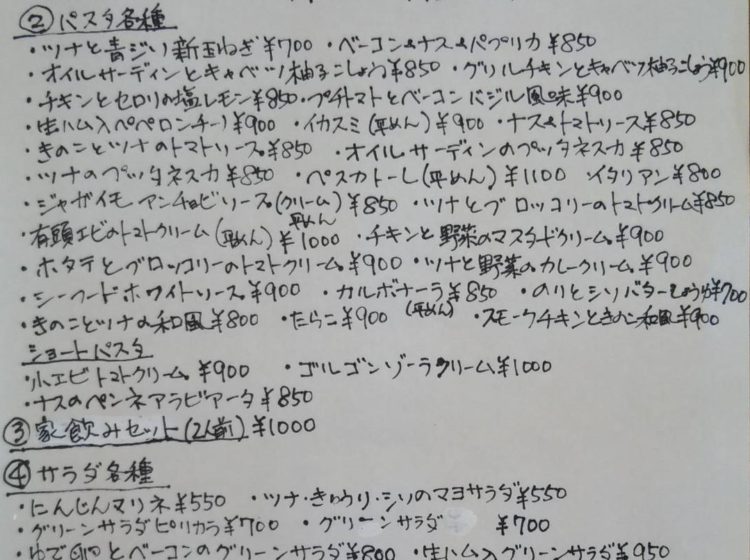 ②パスタ各種
・ツナと青ジソ新玉ねぎ¥700 ・ベーコン&ナス&パプリカ¥850
・オイルサーディンとキャベツ柚子こしょう¥850 ・グリルチキンとキャベツ柚子こしょう¥900
・チキンとセロリの塩レモン¥850 ・プチトマトとベーコンバジル風味¥900
・生ハム入ペペロンチーノ¥900 ・イカスミ(平めん)¥900 ・ナス&トマトソース¥850
・きのことツナのトマトソース¥850 ・オイルサーディンのプッタネスカ¥850
・ツナのプッタネスカ¥850 ・ペスカトーレ(平めん)¥1100 ・イタリアン¥800
・ジャガイモアンチョビソース(クリーム)¥850 ・ツナとブロッコリーのトマトクリーム¥850
・有頭エビのトマトクリーム(平めん)¥1000 ・チキンと野菜のマスタードクリーム¥900
・ホタテとブロッコリーのトマトクリーム¥900 ・ツナと野菜のカレークリーム¥900
・シーフードホワイトソース¥900 ・カルボナーラ(平めん)¥850 ・のりとシソバターしょうゆ¥700
・きのことツナの和風¥800 ・たらこ¥900 ・スモークチキンときのこ和風¥900
ショートパスタ
・小エビトマトクリーム¥900 ・ゴルゴンゾーラクリーム¥1000
・ナスのペンネアラビアータ¥850
③家飲みセット(2人前)¥1000
④サラダ各種
・にんじんマリネ¥550 ・ツナ・きゅうり・シソのマヨサラダ¥550
・グリーンサラダピリカラ¥700 ・グリーンサラダ ¥700
・ゆで卵とベーコンのグリーンサラダ¥800 ・生ハム入グリーンサラダ¥950